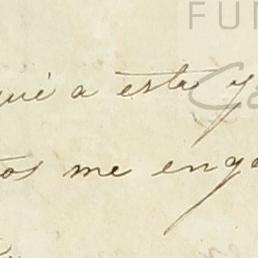 FUN
qué a esta y
tos me enga